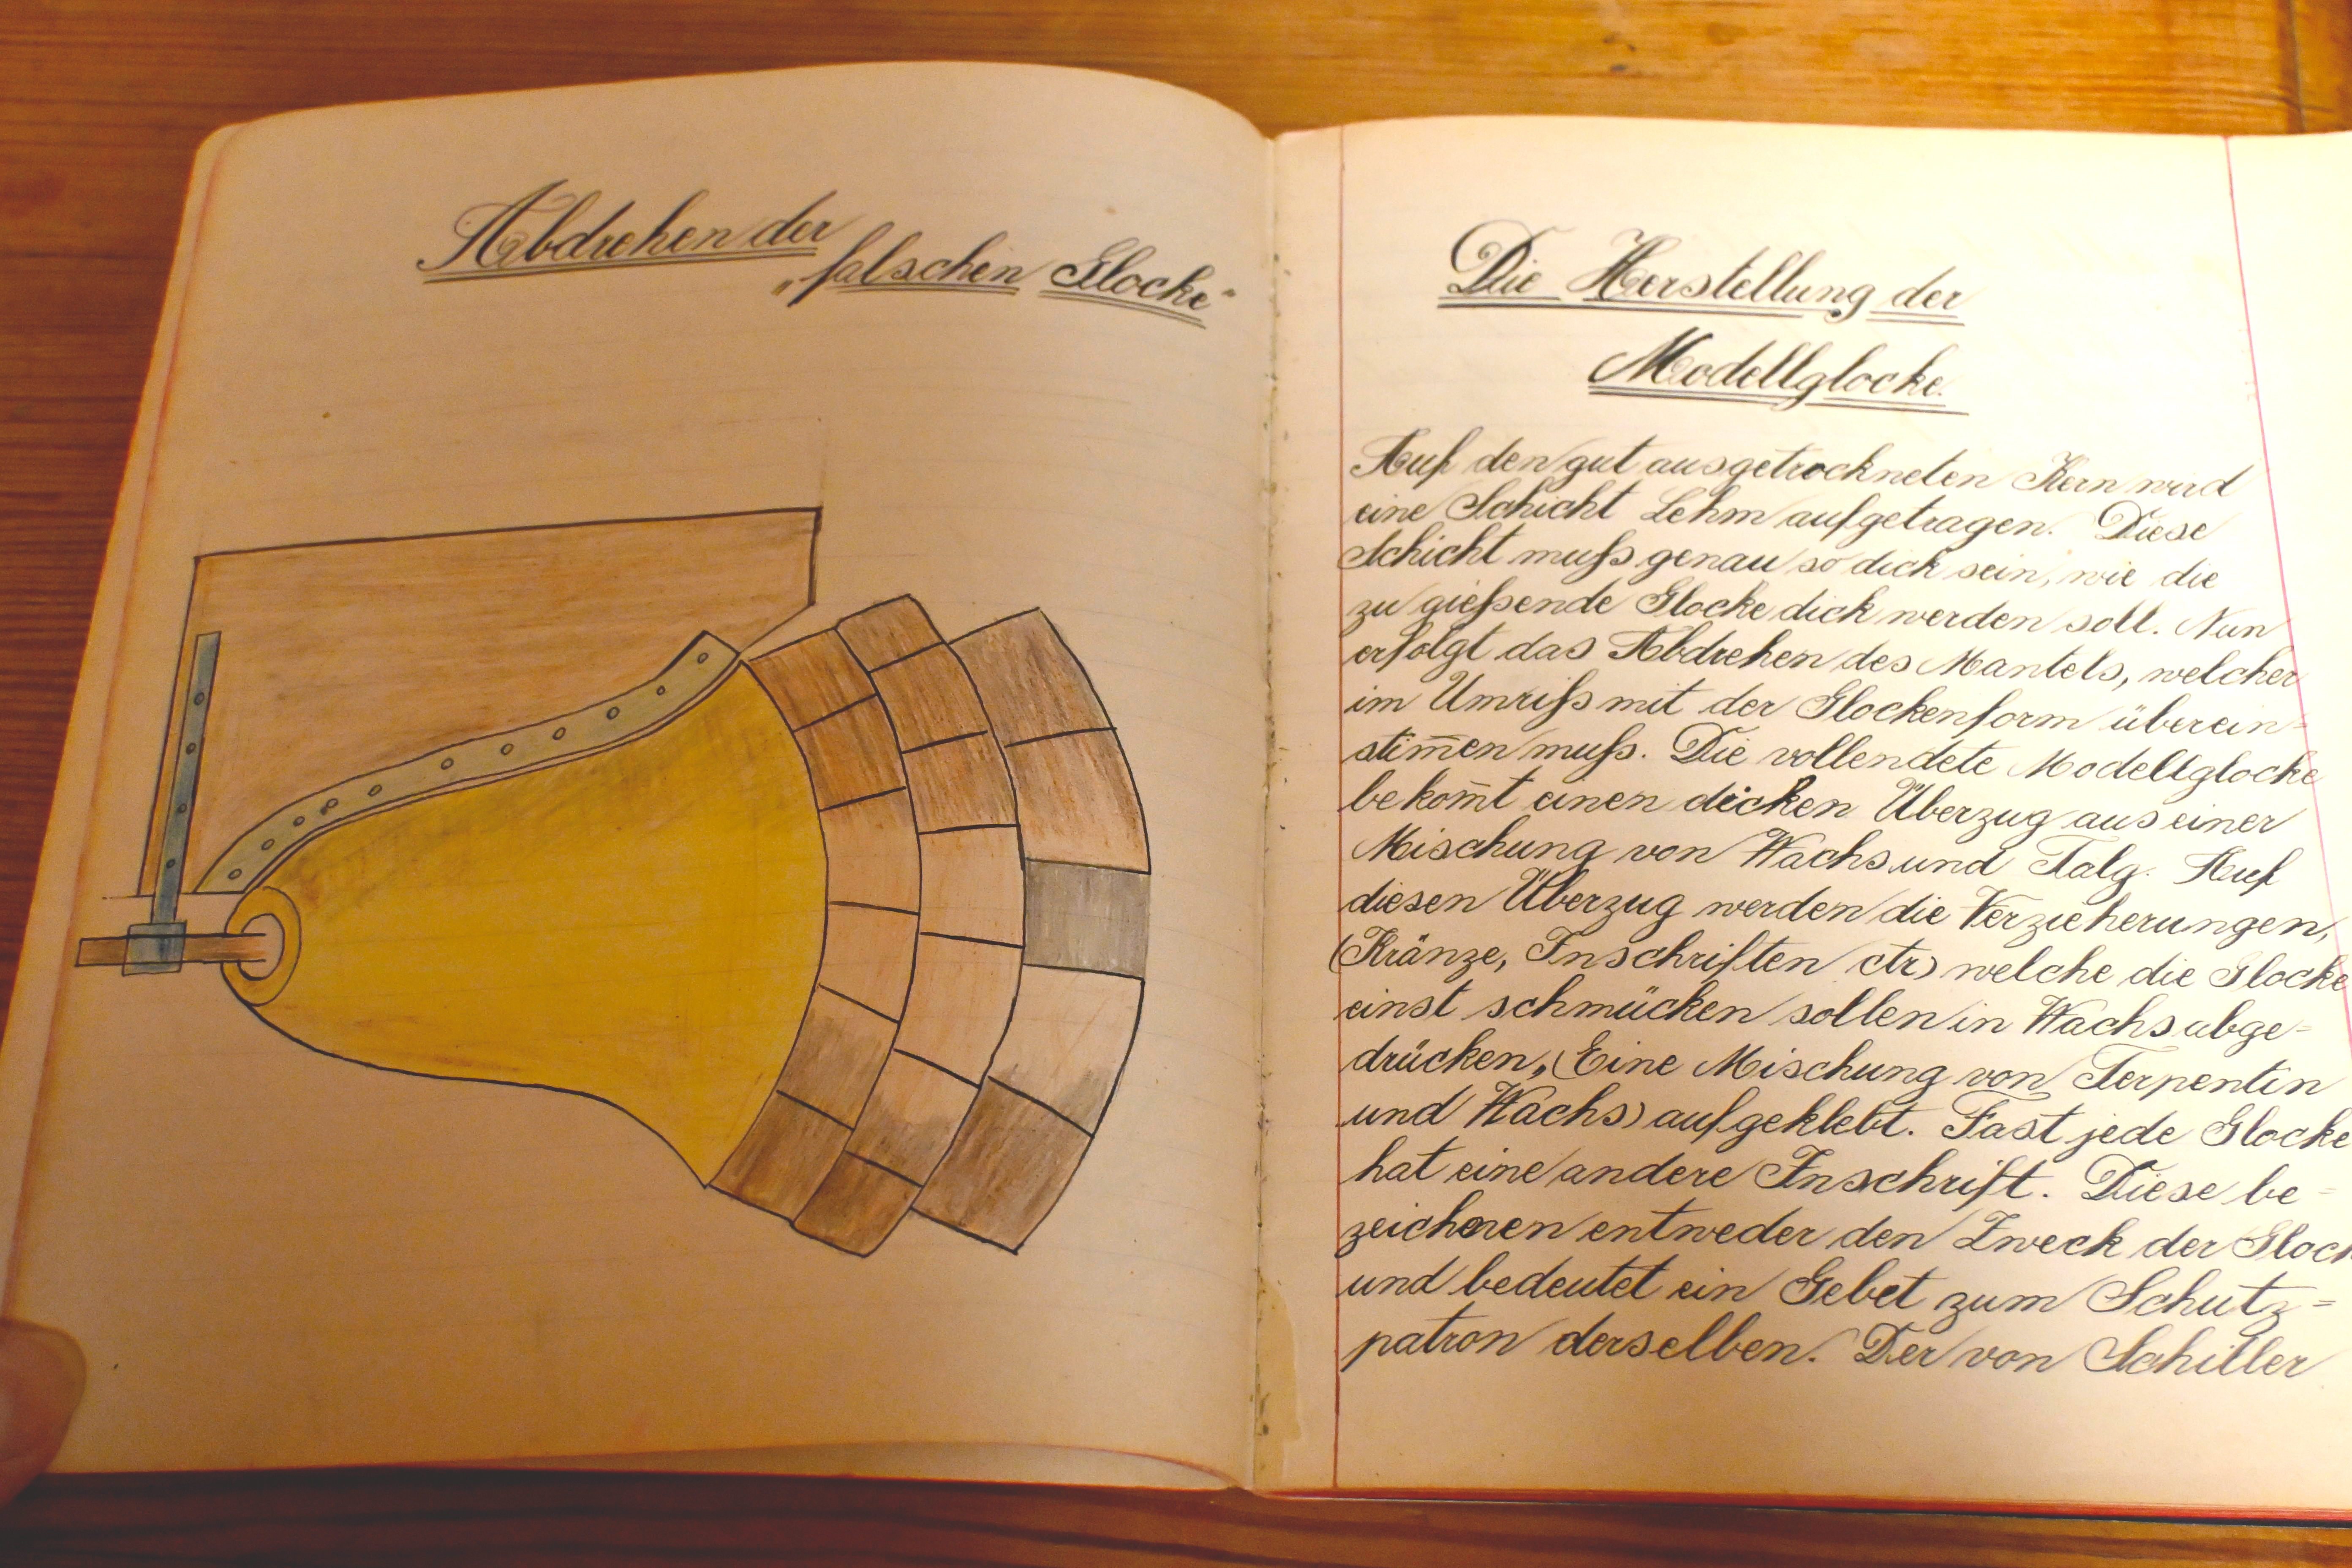 Abdrehen der
„falschen Glocke"
Die Herstellung der
Modellglocke.
Auf den gut ausgetrockneten Kern wird
eine Schicht Lehm aufgetragen. Diese
Schicht muß genau so dick sein, wie die
zu gießende Glocke dick werden soll. Nun
erfolgt das Abdrehen des Mantels, welcher
im Umriß mit der Glockenform überein=
stim̄en muß. Die vollendete Modellglocke
bekom̄t einen dicken Überzug aus einer
Mischung von Wachs und Talg. Auf
diesen Überzug werden die Verzieherungen,
(Kränze, Inschriften ctr) welche die Glocke
einst schmücken sollen in Wachs abge=
drücken, (Eine Mischung von Terpentin
und Wachs) aufgeklebt. Fast jede Glocke
hat eine andere Inschrift. Diese be=
zeichnen entweder den Zweck der Glock
und bedeutet ein Gebet zum Schutz=
patron derselben. Der von Schiller